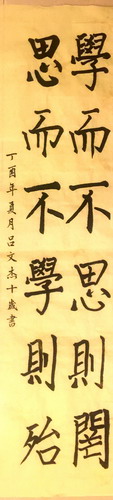 學而不思則罔
思而不學則殆
丁酉年夏月呂文杰十歲書